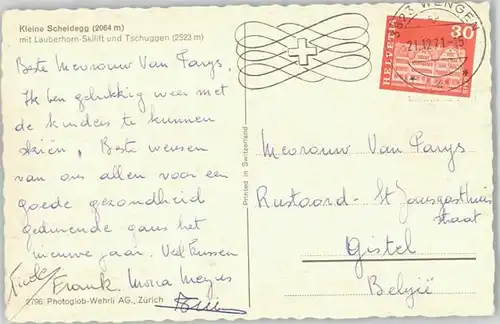 Kleine Scheidegg (2064 m)
mit Lauberhorn-Skilift und Tschuggen (2523 m)
Beste Mevrouw Van Parys,
Ik ben gelukkig weer met
de kinders te kunnen
skiën, Beste wensen
van ons allen voor een
goede gezondheid
gedurende gans het
nieuwe jaar. Veel kussen
Frank
2796 Photoglob-Wehrli AG., Zürich
Printed in Switzerland
3823 WENGEN
21.12.71-15
HELVETIA
30
Mevrouw Van Parys
Rustoord - St Jansgasthuis
straat
Gistel
België